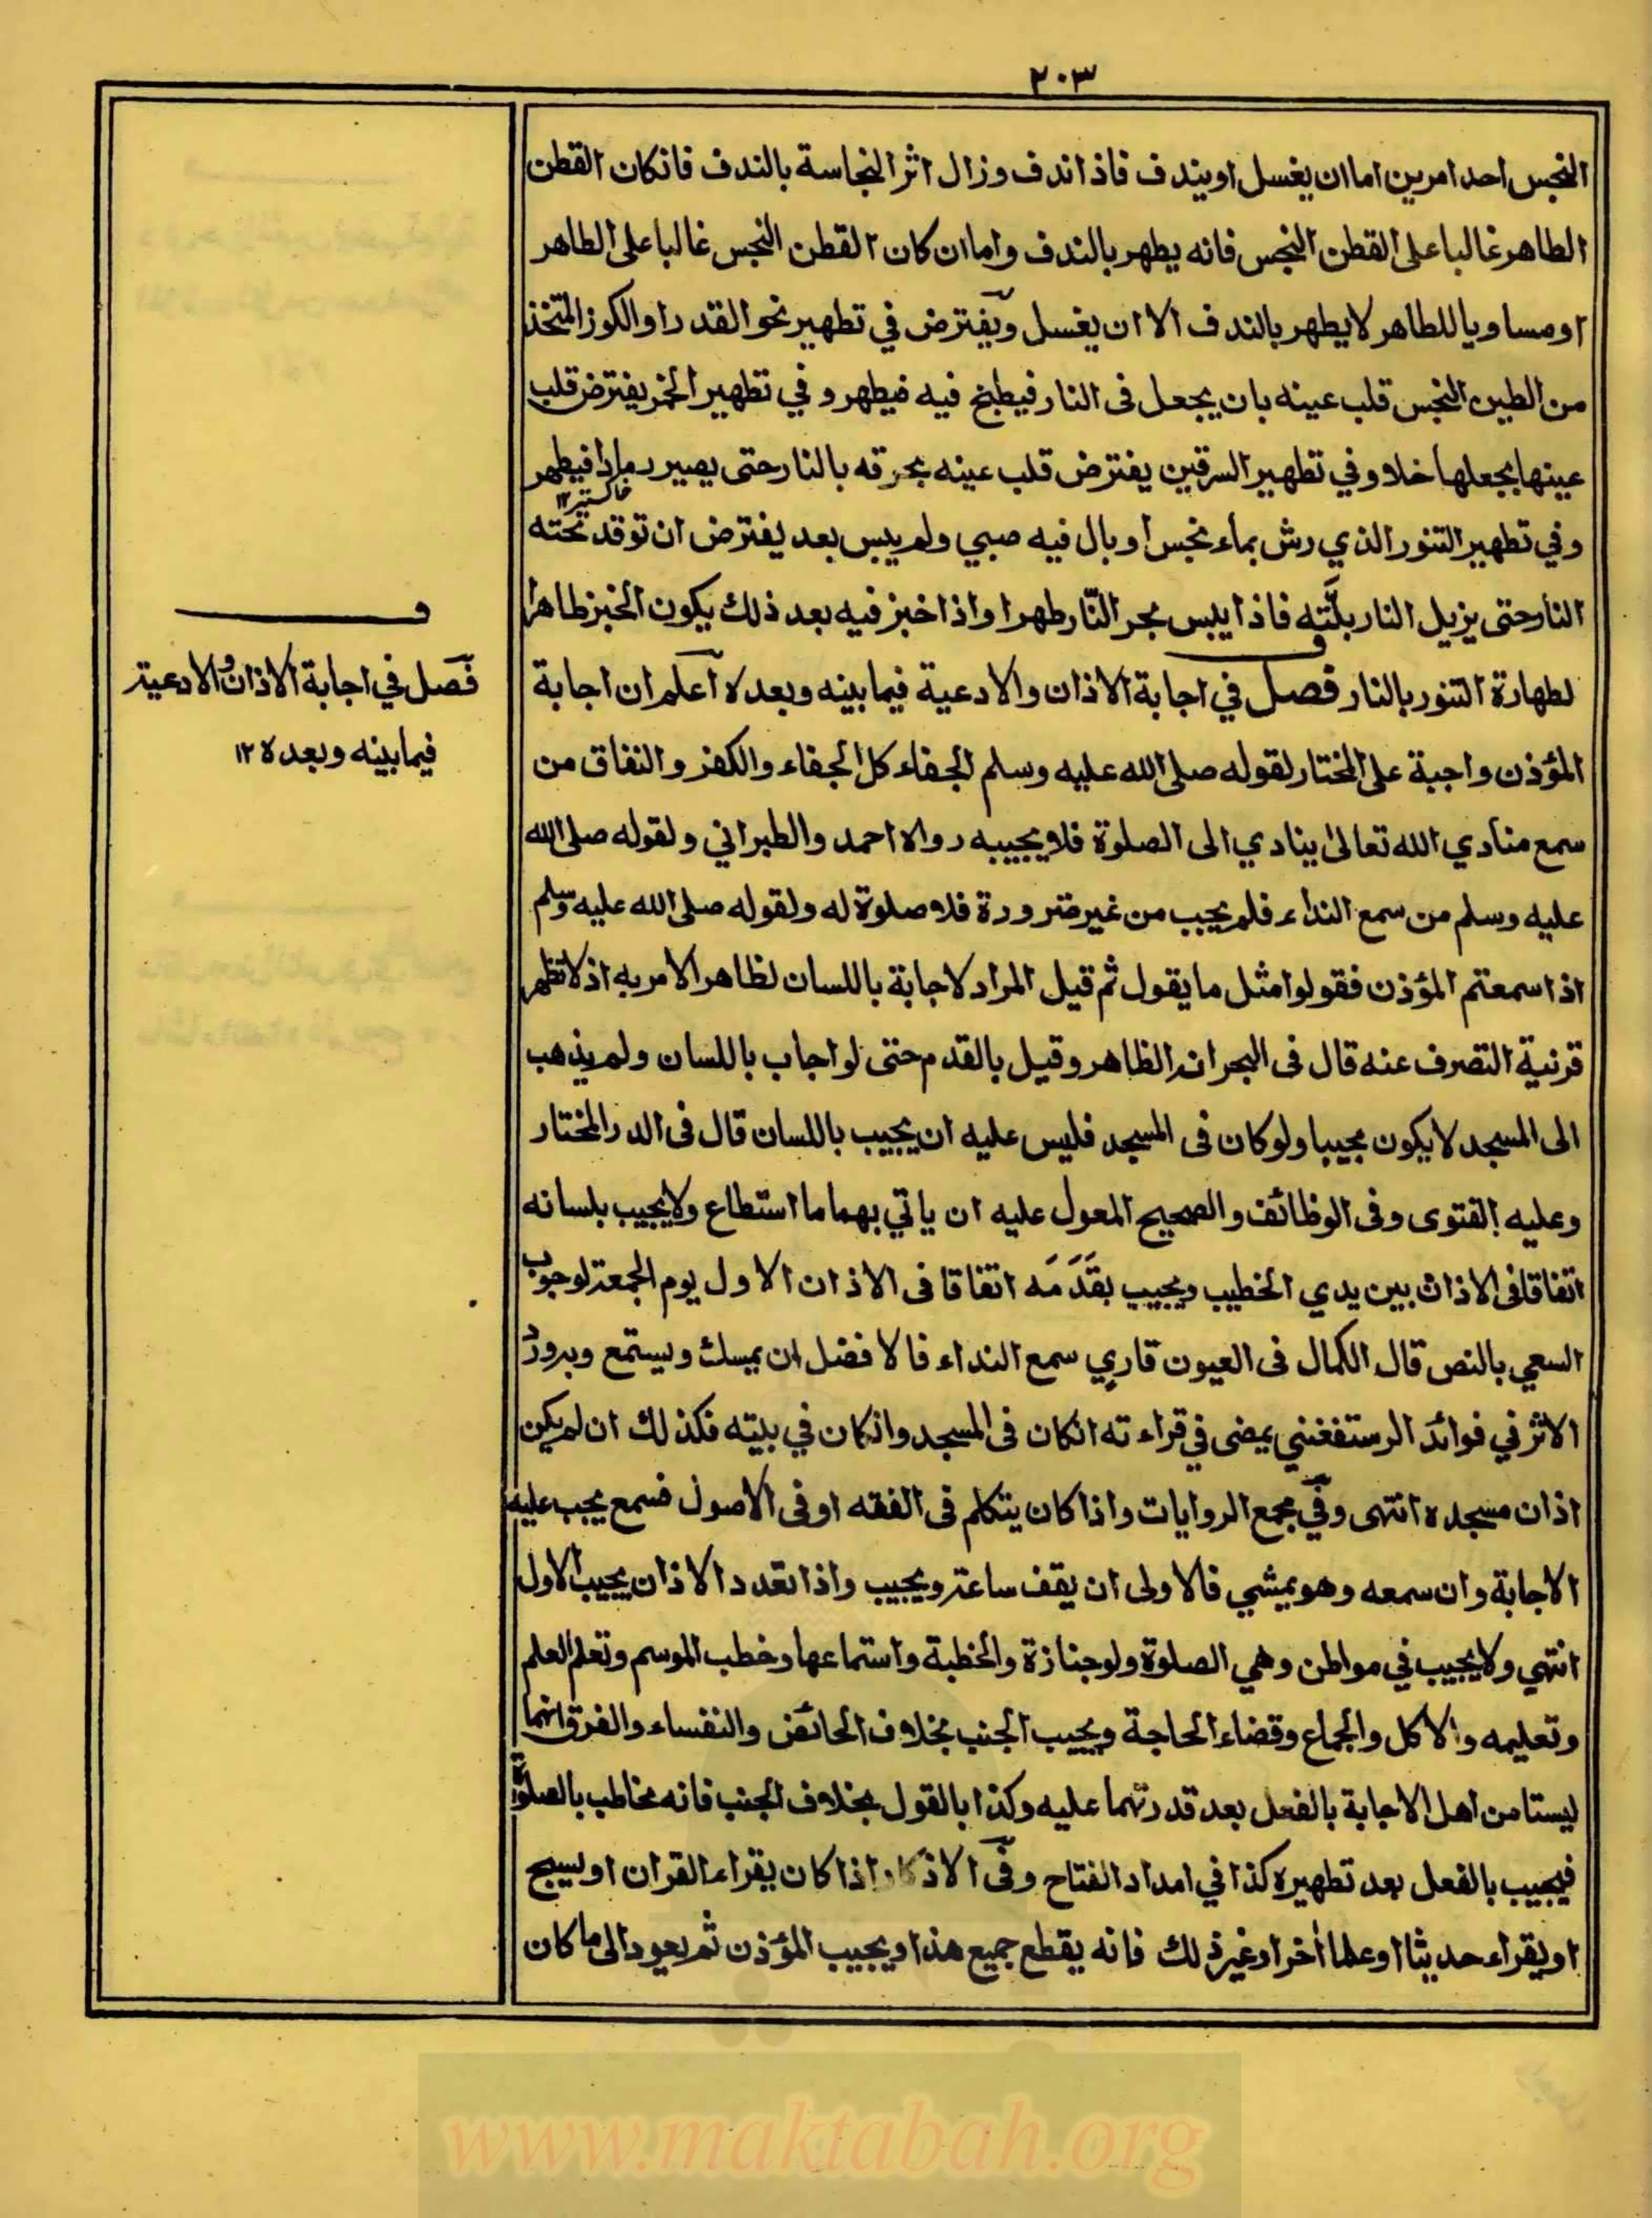 ٢٠٣
النجس احد امرين اما ان يغسل او يندف فاذا ندف وزال اثر النجاسة بالندف فانكان القطن
الطاهر غالبا على القطن النجس فانه يطهر بالندف واما ان كان القطن النجس غالبا على الطاهر
او مساويا للطاهر لا يطهر بالندف الا ان يغسل ويفترض في تطهير نحو القدر او الكوز المتخذ
من الطين النجس قلب عينه بان يجعل فى النار فيطبخ فيه فيطهر و في تطهير الخمر يفترض قلب
عينها بجعلها خلا وفي تطهير السرقين يفترض قلب عينه بحرقه بالنار حتى يصير رمادا فيطهر
خاكستر ١٢
وفي تطهير التنور الذي رش بماء نجس او بال فيه صبي ولم ييبس بعد يفترض ان توقد تحته
النار حتى يزيل النار بلّته فاذا يبس بحر النّار طهر واذا خبز فيه بعد ذلك يكون الخبز طاهرا
لطهارة التنور بالنار فصل في اجابة الاذان والادعية فيما بينه وبعده اعلم ان اجابة
المؤذن واجبة على المختار لقوله صلى الله عليه وسلم الجفاء كل الجفاء والكفر والنفاق من
سمع منادي الله تعالى ينادي الى الصلوة فلا يجيبه رواه احمد والطبراني ولقوله صلى الله
عليه وسلم من سمع النداء فلم يجب من غير ضرورة فلا صلوة له ولقوله صلى الله عليه وسلم
اذا سمعتم المؤذن فقولوا مثل ما يقول ثم قيل المراد لاجابة باللسان لظاهر الامر به اذ لا تظهر
قرنية التصرف عنه قال فى البحر انه الظاهر وقيل بالقدم حتى لو اجاب باللسان ولم يذهب
الى المسجد لا يكون مجيبا ولو كان فى المسجد فليس عليه ان يجيب باللسان قال فى الدر المختار
وعليه الفتوى وفى الوظائف والصحيح المعول عليه ان ياتي بهما ما استطاع ولا يجيب بلسانه
اتفاقا فى الاذان بين يدي الخطيب ويجيب بقَدَمَه اتفاقا فى الاذان الاول يوم الجمعة لوجوب
السعي بالنص قال الكمال فى العيون قاري سمع النداء فالافضل ان يمسك ويستمع وبه ورد
الاثر في فوائد الرستفغنني يمضى في قراءته انكان فى المسجد وانكان في بيته فكذلك ان لم يكن
اذان مسجده انتهى وفي مجمع الروايات واذا كان يتكلم فى الفقه او فى الاصول فسمع يجب عليه
الاجابة وان سمعه وهو يمشي فالاولى ان يقف ساعة ويجيب واذا تعدد الاذان يجيب الاول
انتهى ولا يجيب في مواطن وهي الصلوة ولو جنازة والخطبة واستماعها وخطب الموسم وتعلم العلم
وتعليمه والاكل والجماع وقضاء الحاجة ويجيب الجنب بخلاف الحائض والنفساء والفرق انهما
ليستا من اهل الاجابة بالفعل بعد قدرتهما عليه وكذا بالقول بخلاف الجنب فانه مخاطب بالصلوة
فيجيب بالفعل بعد تطهيره كذا في امداد الفتاح وفى الاذكار اذا كان يقراء القران او يسبح
او يقراء حديثا او علما أخر او غير ذلك فانه يقطع جميع هذا ويجيب المؤذن ثم يعود الى ما كان
ف
فصل في اجابة الاذان والادعية
فيما بينه وبعده ١٢
www.maktabah.org